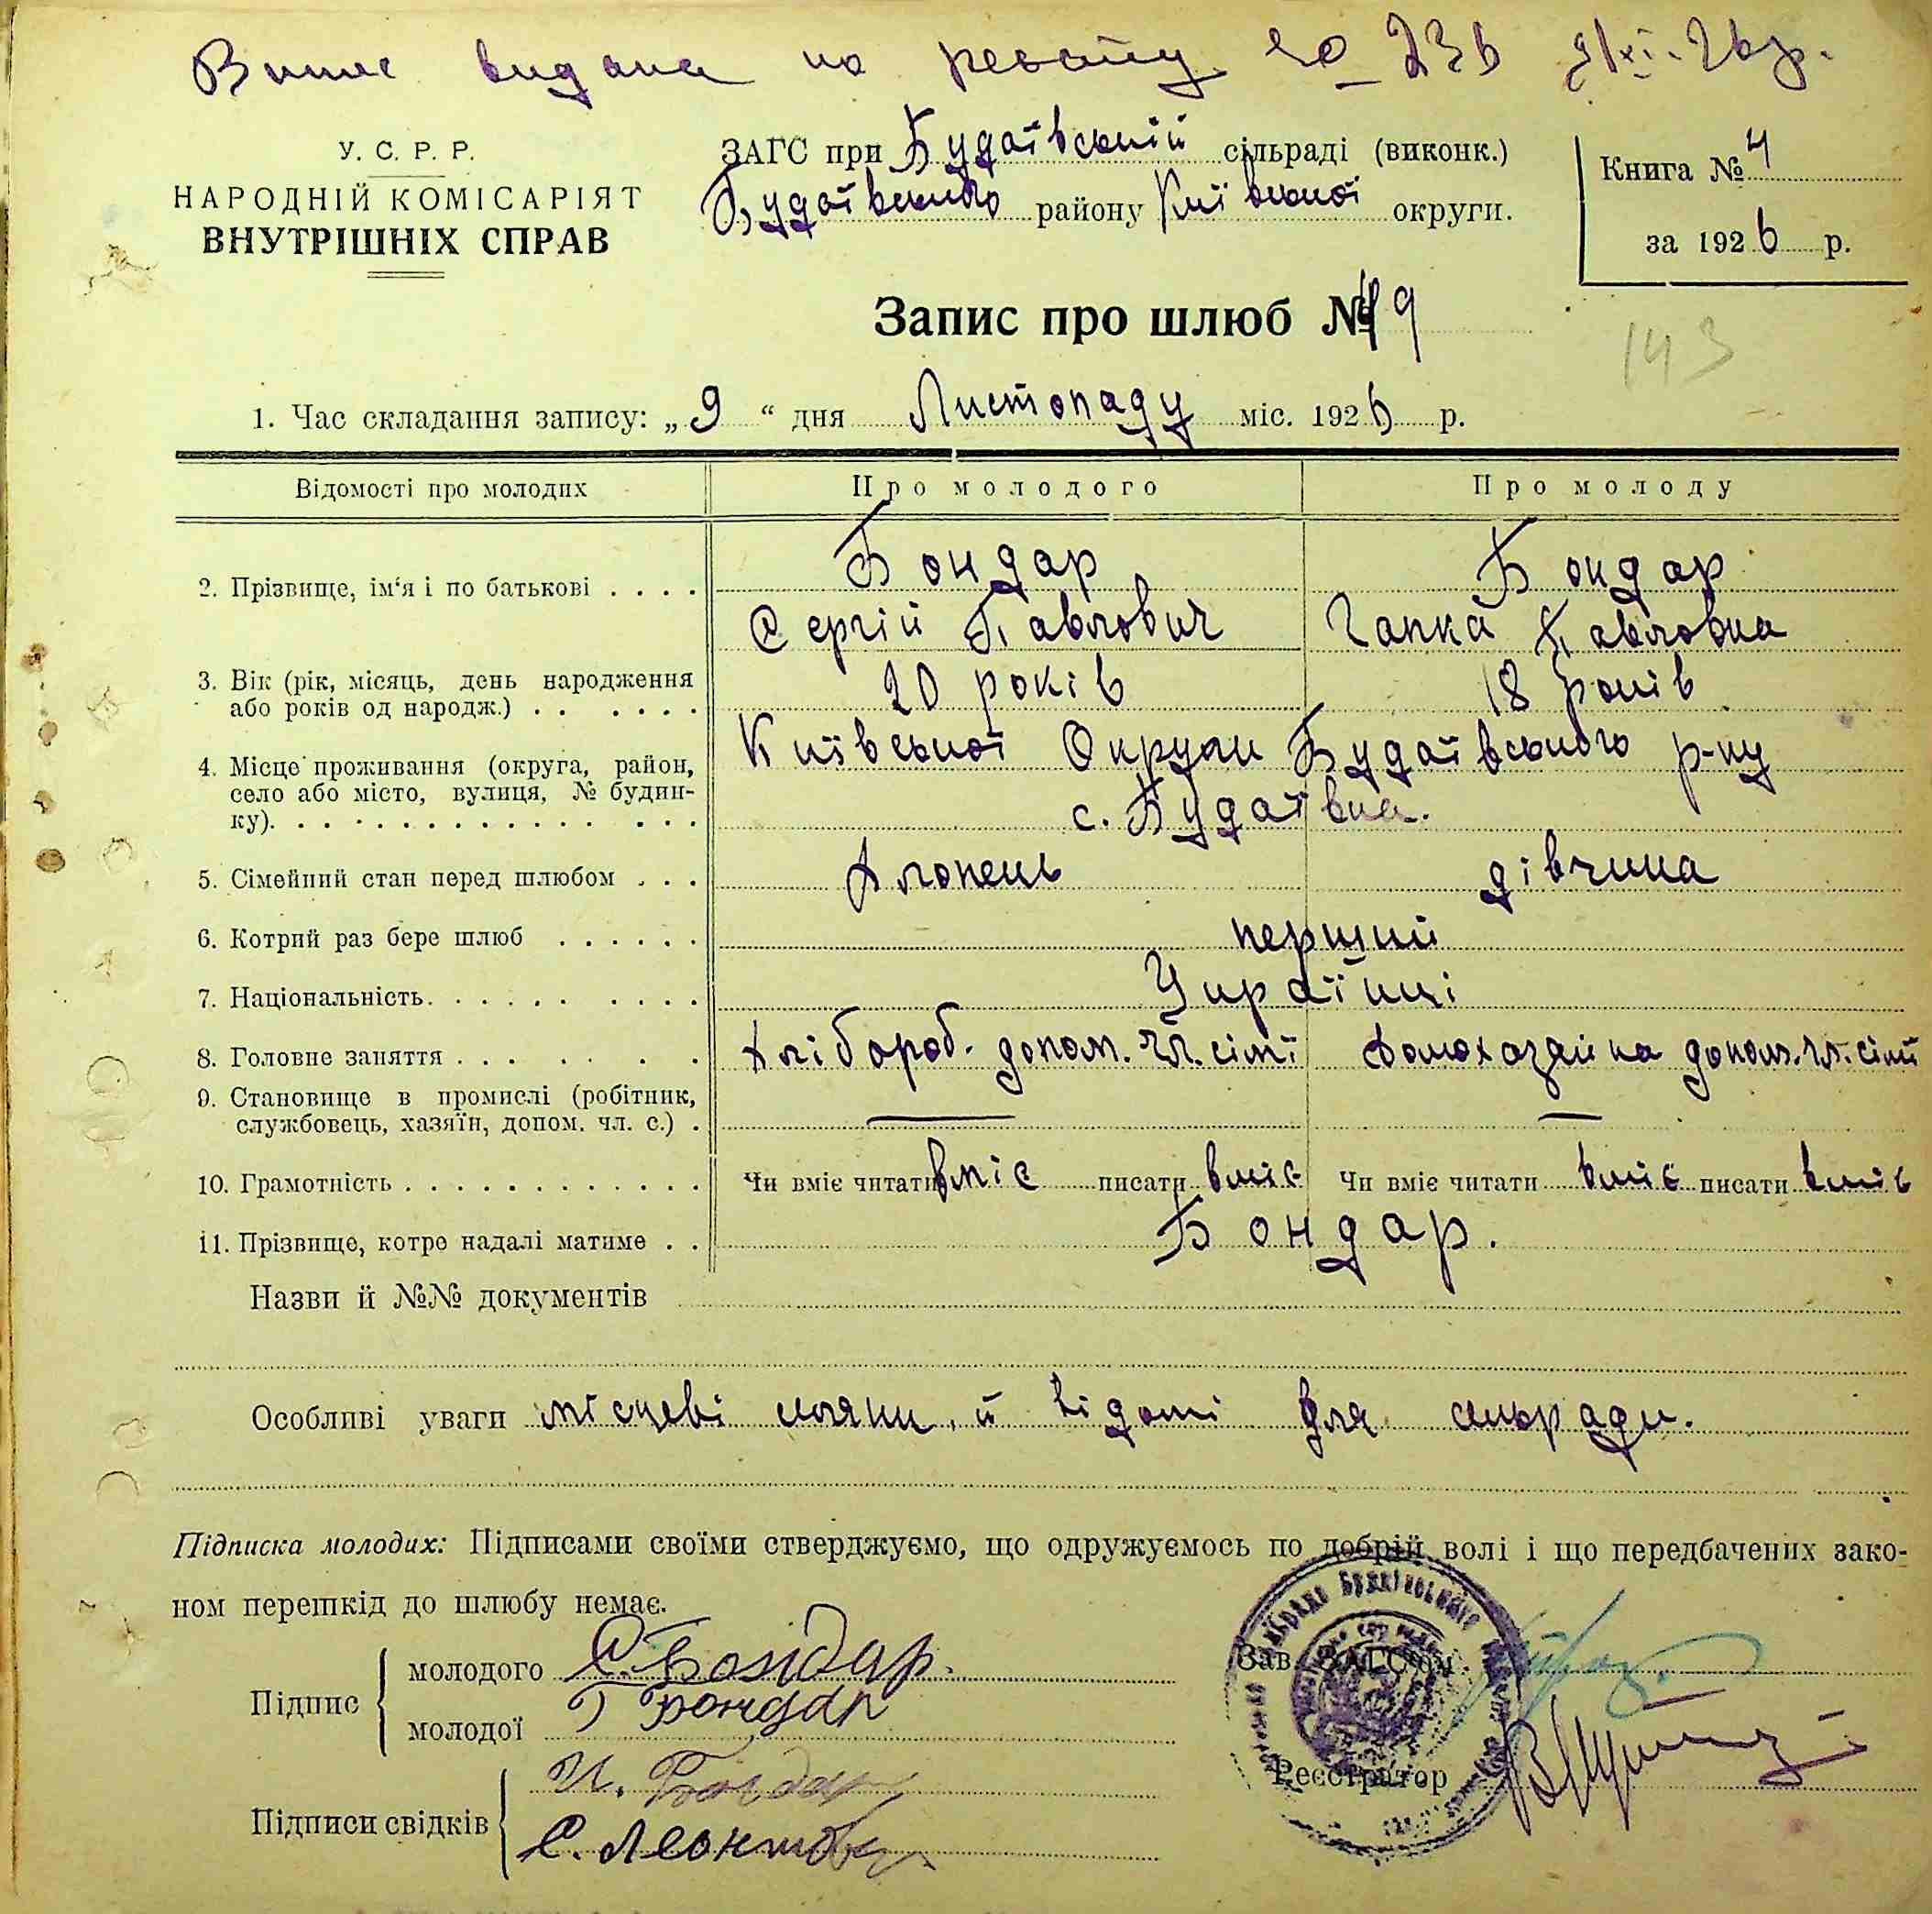 Випис видана на № 236 9/XI-26р.
У. С. Р. Р.
НАРОДНІЙ КОМІСАРІЯТ
ВНУТРІШНІХ СПРАВ
ЗАГС при Будаївській сільраді (виконк.)
Будаївського району Київської округи.
Книга № 4
за 1926 р.
Запис про шлюб № 49
143
1. Час складання запису: „ 9 “ дня Листопаду міс. 1926 р.
Відомості про молодих Про молодого Про молоду
2. Прізвище, ім‘я і по батькові . . . . Бондар Бондар
Сергій Павлович Гапка Павловна
3. Вік (рік, місяць, день народження 20 років 18 років
або років од народж.) . . . . . .
4. Місце проживання (округа, район, Київської Округи Будаївського р-ну
село або місто, вулиця, № будин-
ку). . . . . . . . . . . . . . . с. Будаївка.
5. Сімейний стан перед шлюбом . . . Хлопець дівчина
6. Котрий раз бере шлюб . . . . . . перший
7. Національність. . . . . . . . . . Українці
8. Головне заняття . . . . . . . Хлібороб. допом. чл. сім'ї Домохазяйка допом. чл. сім'ї
9. Становище в промислі (робітник,
службовець, хазяїн, допом. чл. с.) . — —
10. Грамотність . . . . . . . . . . . . Чи вміє читати вміє писати вміє Чи вміє читати вміє писати вміє
11. Прізвище, котре надалі матиме . . Бондар.
Назви й №№ документів
Особливі уваги місцеві й відомі для сільради.
Підписка молодих: Підписами своїми стверджуємо, що одружуємось по добрій волі і що передбачених зако-
ном перешкід до шлюбу немає.
Підпис
молодого С. Бондар.
молодої Г Бондар
Зав. ЗАГС'ом
Реєстратор
Підписи свідків
И. Бондар
С. Леонтов